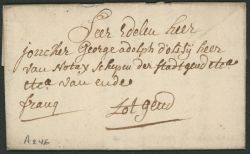 Seer Edelen heer
joncker George adolph d'olisij heer
van Notax schepen der stadt gend etca
etca van ende
franq tot gend
A 246